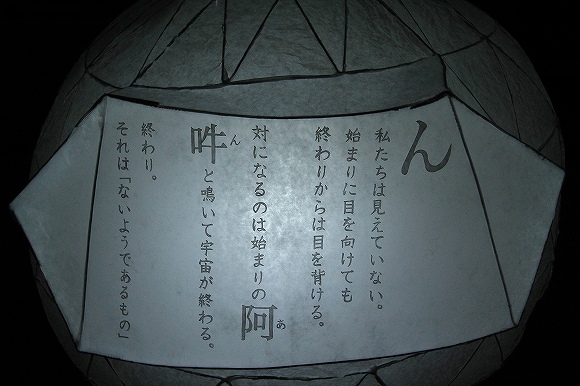 ん
私たちは見えていない。
始まりに目を向けても
終わりからは目を背ける。
対になるのは始まりの阿あ
吽んと鳴いて宇宙が終わる。
終わり。
それは「ないようであるもの」